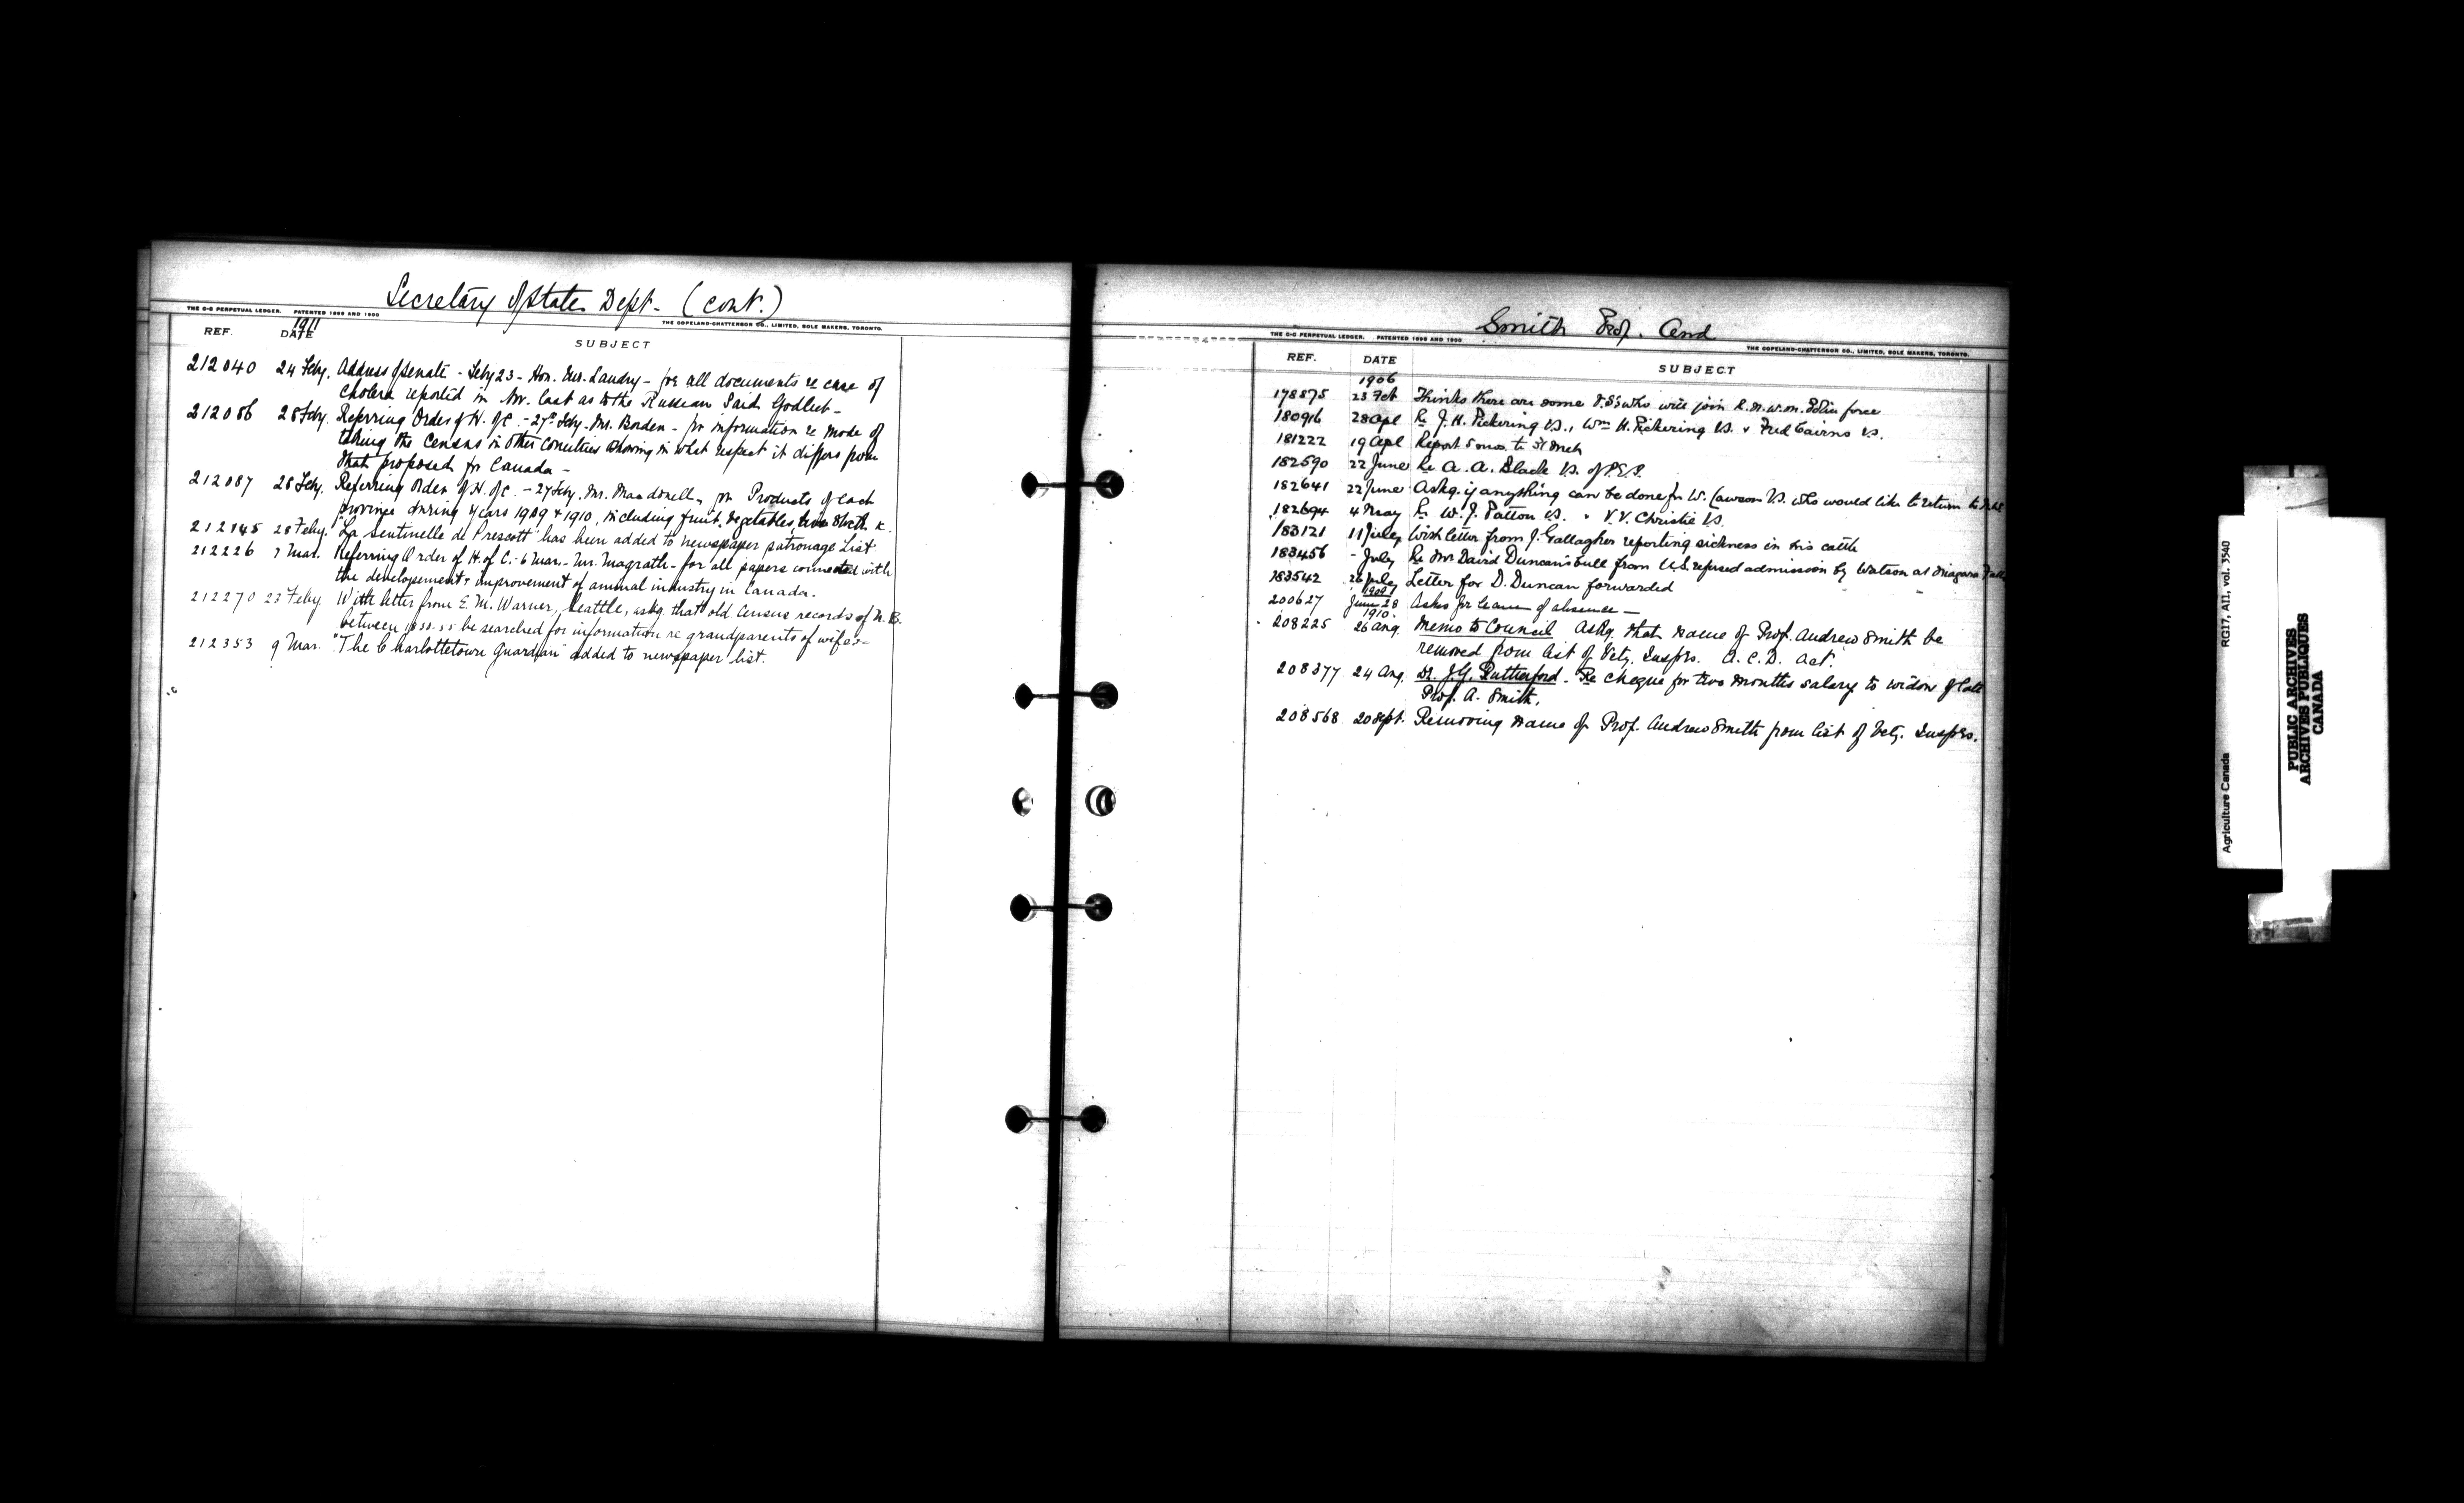 Secretary of State Dept. (cont.)
THE C-C PERPETUAL LEDGER. PATENTED 1896 AND 1900
THE COPELAND-CHATTERSON CO., LIMITED, SOLE MAKERS, TORONTO.
REF. DATE 1911 SUBJECT
212040 24 Feby. Address of Senate - Feby 23 - Hon. Mr. Landry - for all documents re case of
Cholera reported in Nov. last as to the Russian Said Godlieb -
212086 28 Feby. Referring Order of H. of C. - 27th Feby. Mr. Borden - for information re mode of
taking the Census in other Countries showing in what respect it differs from
that proposed for Canada -
212087 28 Feby. Referring Order of H. of C. - 27 Feby. Mr. Macdonell, for Products of each
province during years 1909 & 1910, including fruit, vegetables, live Stock &c.
212145 28 Feby. "La Sentinelle de Prescott" has been added to newspaper patronage List
212226 7 Mar. Referring Order of H. of C. - 6 Mar. - Mr. Magrath - for all papers connected with
the developement & improvement of animal industry in Canada.
212270 23 Feby. With letter from E. M. Warner, Seattle, askg. that old Census records of N. B.
between 1830-55 be searched for information re grandparents of wife -
212353 9 Mar. "The Charlottetown Guardian" added to newspaper list.
Smith Prof. And
THE C-C PERPETUAL LEDGER. PATENTED 1896 AND 1900
THE COPELAND-CHATTERSON CO., LIMITED, SOLE MAKERS, TORONTO.
REF. DATE SUBJECT
1906
178575 23 Feb Thinks there are some V.S's who will join R.N.W.M. Police force
180916 28 Apl Re J. H. Pickering V.S., Wm H. Pickering V.S. & Fred Cairns V.S.
181222 19 Apl Report 5 mos. to 31 Mch
182590 22 June Re A. A. Black V.S. of P.E.I.
182641 22 June Askg. if anything can be done for W. Lawson V.S. who would like to return to
182694 4 May Re W. J. Patton V.S. " V. V. Christie V.S.
183121 11 July With letter from J. Gallagher reporting sickness in his cattle
183456 - July Re Mr David Duncan's bull from U.S. refused admission by Watson at Niagara Falls
183542 26 July Letter for D. Duncan forwarded
1909
200627 June 28 Asks for leave of absence -
1910.
208225 26 Aug. Memo to Council Askg. that name of Prof. Andrew Smith be
removed from list of Vety. Insprs. A. C. D. Act.
208377 24 Aug. Dr. J. G. Rutherford - Re cheque for two months salary to widow of late
Prof. A. Smith.
208568 20 Sept. Removing name of Prof. Andrew Smith from list of Vety. Insprs.
Agriculture Canada RG17, AII, vol. 3540
PUBLIC ARCHIVES
ARCHIVES PUBLIQUES
CANADA